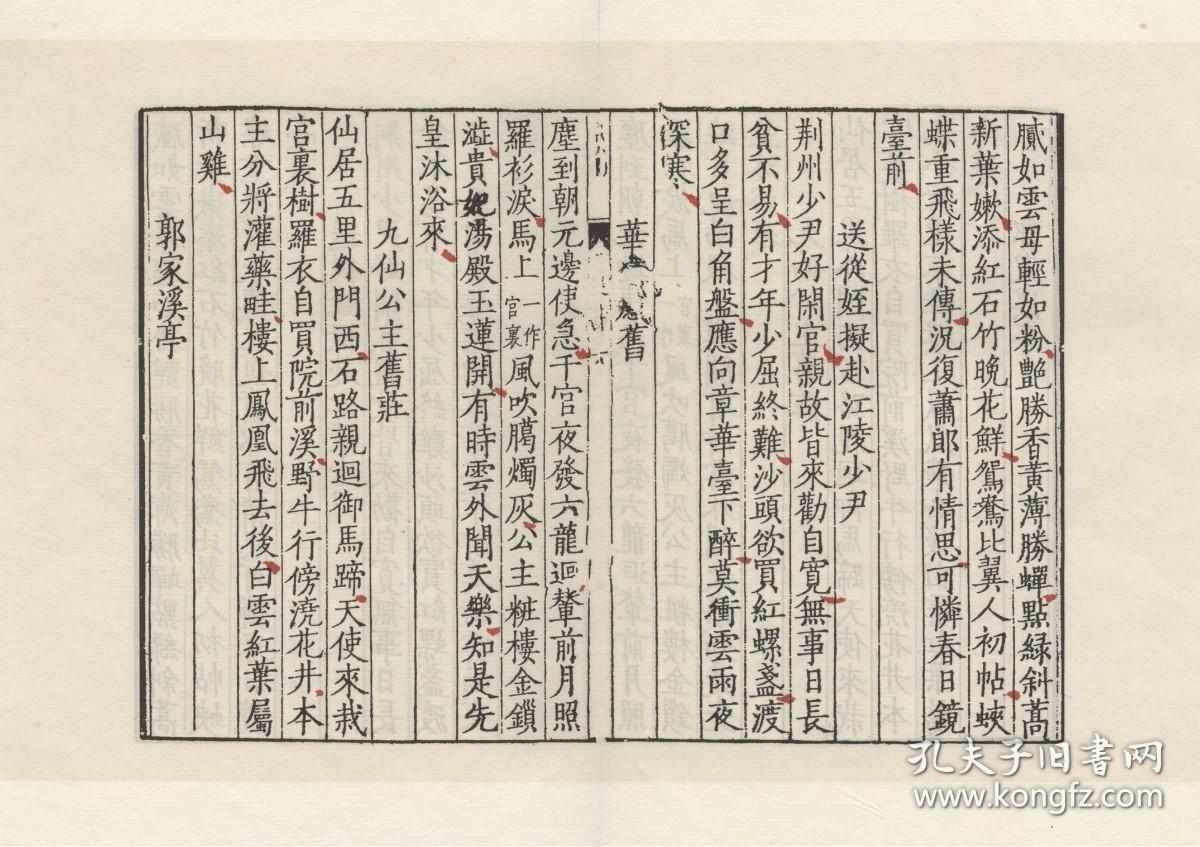 膩如雲母輕如粉艷勝香黃薄勝蟬點綠斜蒿
新葉嫩添紅石竹晚花鮮鴛鴦比翼人初帖蛺
蝶重飛樣未傳況復蕭郎有情思可憐春日鏡
臺前
送從姪擬赴江陵少尹
荆州少尹好閑官親故皆來勸自寬無事日長
貧不易有才年少屈終難沙頭欲買紅螺盞渡
口多呈白角盤應向章華臺下醉莫衝雲雨夜
深寒
華舊
塵到朝元邊使急千官夜發六龍迴輦前月照
羅衫淚馬上一作宮裏風吹臈燭灰公主粧樓金鎖
澁貴妃湯殿玉蓮開有時雲外聞天樂知是先
皇沐浴來
九仙公主舊莊
仙居五里外門西石路親迴御馬蹄天使來栽
宮裏樹羅衣自買院前溪野牛行傍澆花井本
主分將灌藥畦樓上鳳凰飛去後白雲紅葉屬
山雞
郭家溪亭
孔夫子旧书网
www.kongfz.com